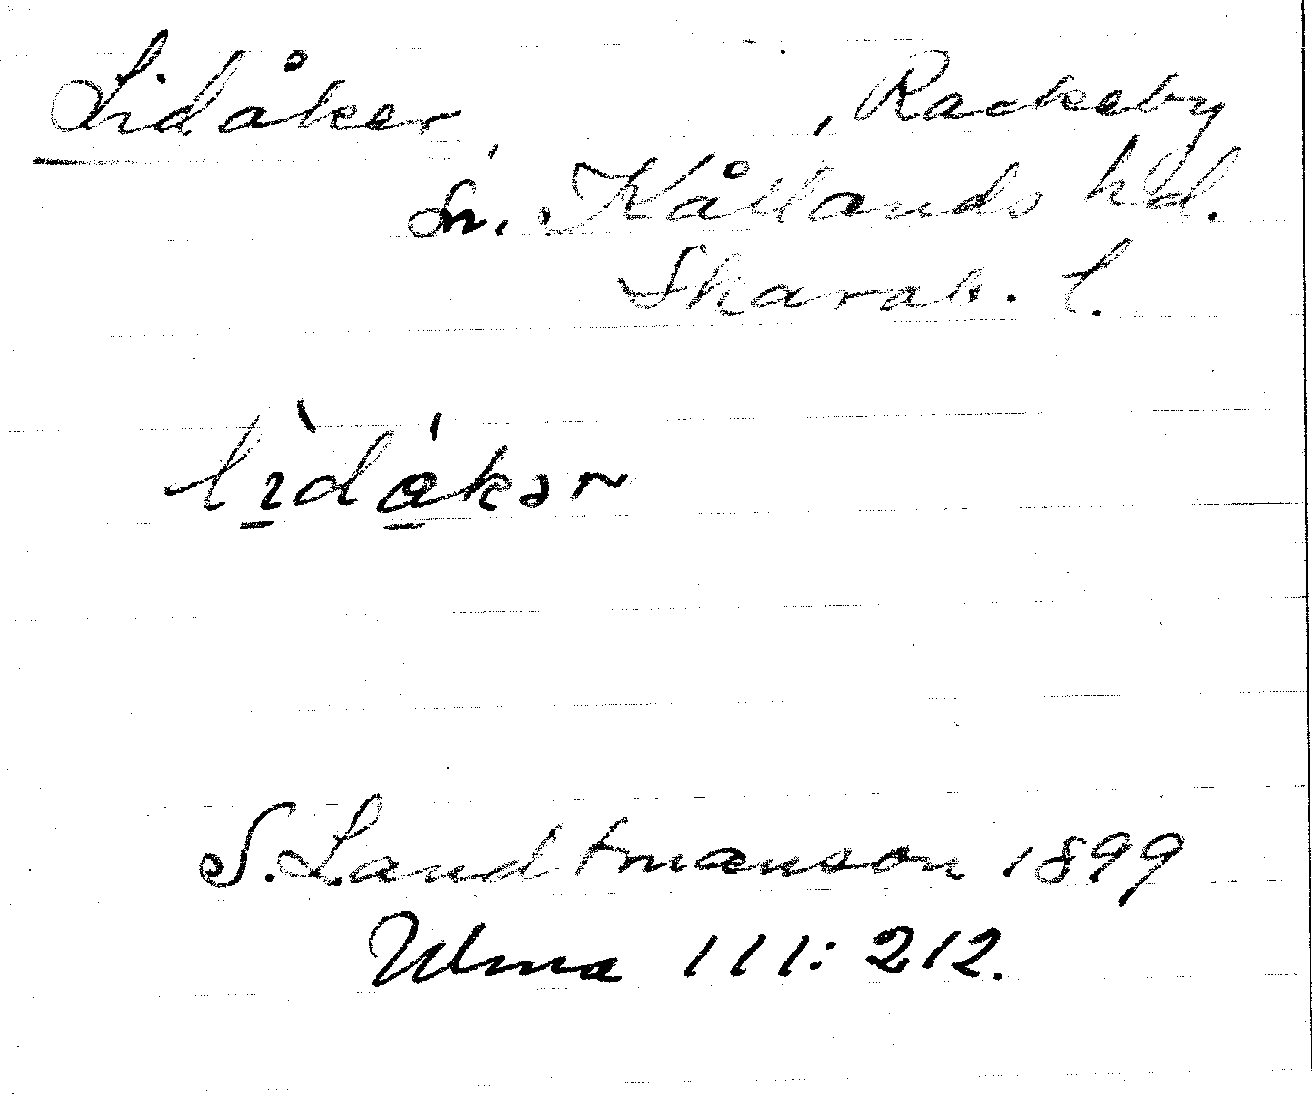 Lidåker, , Rackeby
Sn. Kållands hd.
Skarab. l.
lìdákər
S. Landtmanson 1899
Ulma 111:212.